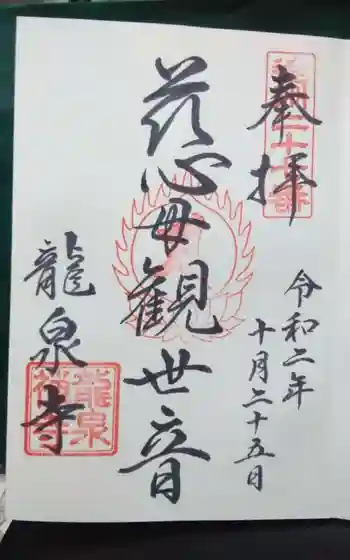 奉拝
令和二年
十月二十五日
慈母観世音
龍泉寺
龍泉
禅寺